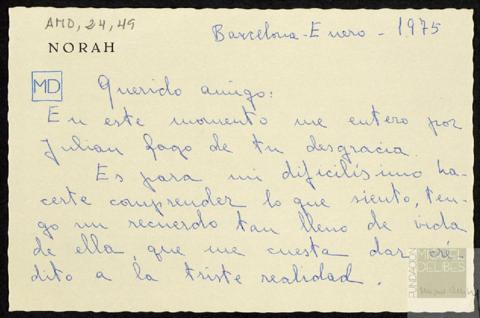 AMD, 24, 49
NORAH
Barcelona - Enero - 1975
MD
Querido amigo:
En este momento me entero por
Julian Gago de tu desgracia.
Es para mi dificilísimo ha-
certe comprender lo que siento, ten-
go un recuerdo tan lleno de vida
de ella, que me cuesta dar cré-
dito a la triste realidad.
FUNDACIÓN
MIGUEL
DELIBES